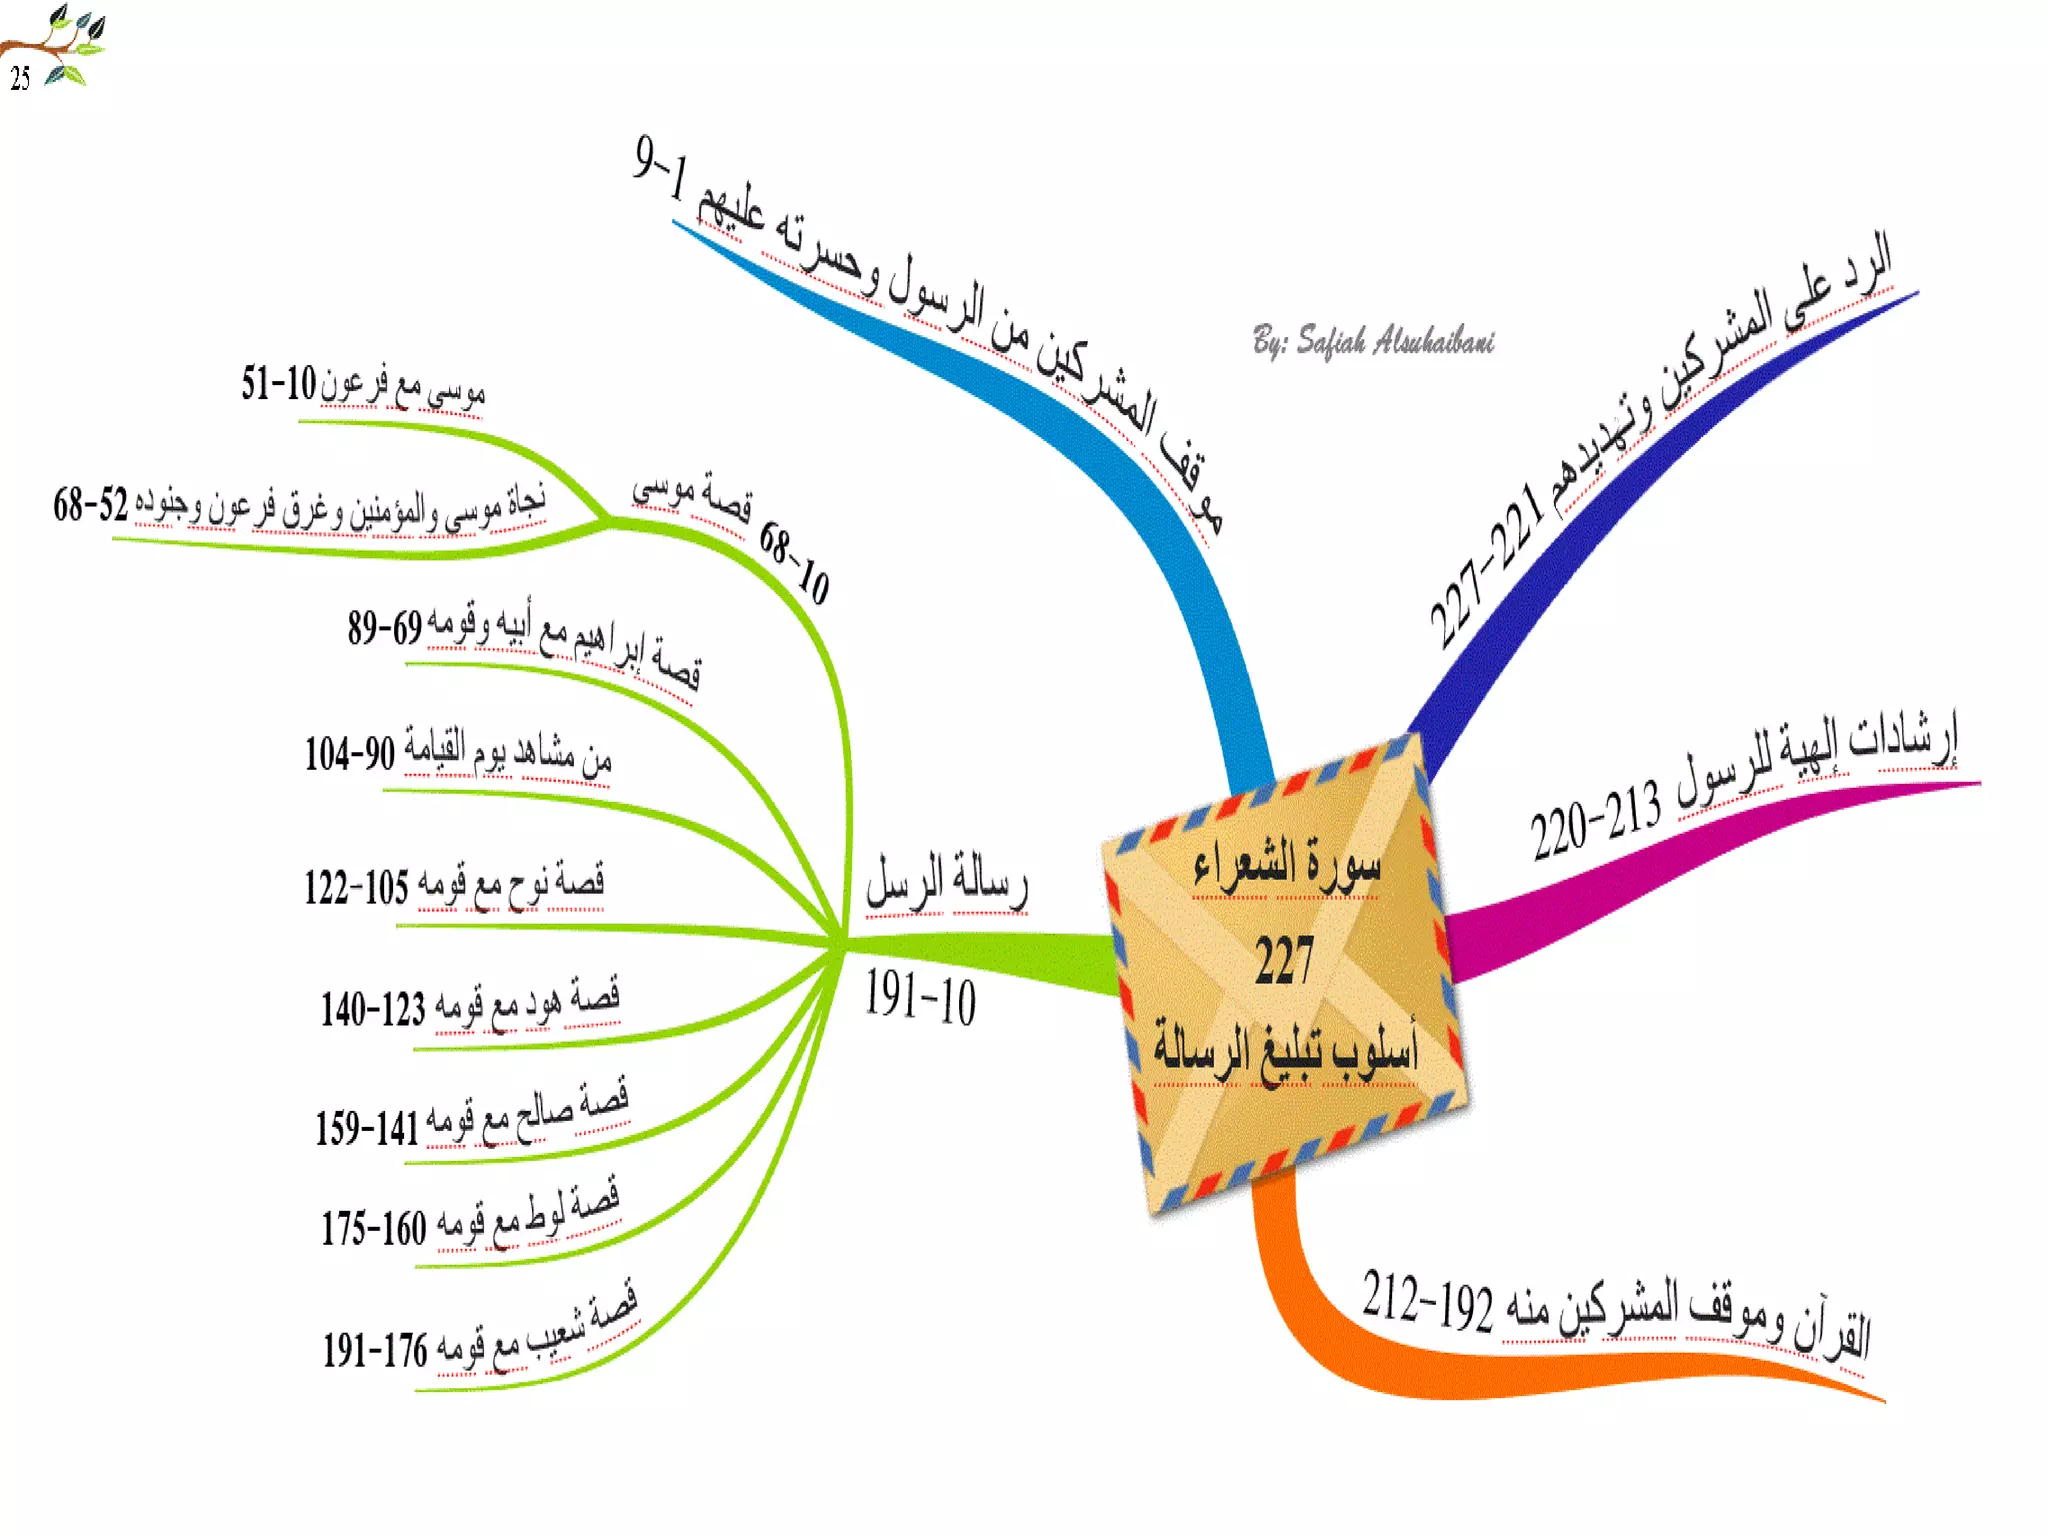 25
موقف المشركين من الرسول وحسرته عليهم 1-9
By: Safiah Alsuhaibani
الرد على المشركين وتهديدهم 221-227
إرشادات إلهية للرسول 213-220
سورة الشعراء
227
أسلوب تبليغ الرسالة
القرآن وموقف المشركين منه 192-212
رسالة الرسل
10-191
قصة موسى 10-68
موسى مع فرعون 10-51
نجاة موسى والمؤمنين وغرق فرعون وجنوده 52-68
قصة إبراهيم مع أبيه وقومه 69-89
من مشاهد يوم القيامة 90-104
قصة نوح مع قومه 105-122
قصة هود مع قومه 123-140
قصة صالح مع قومه 141-159
قصة لوط مع قومه 160-175
قصة شعيب مع قومه 176-191